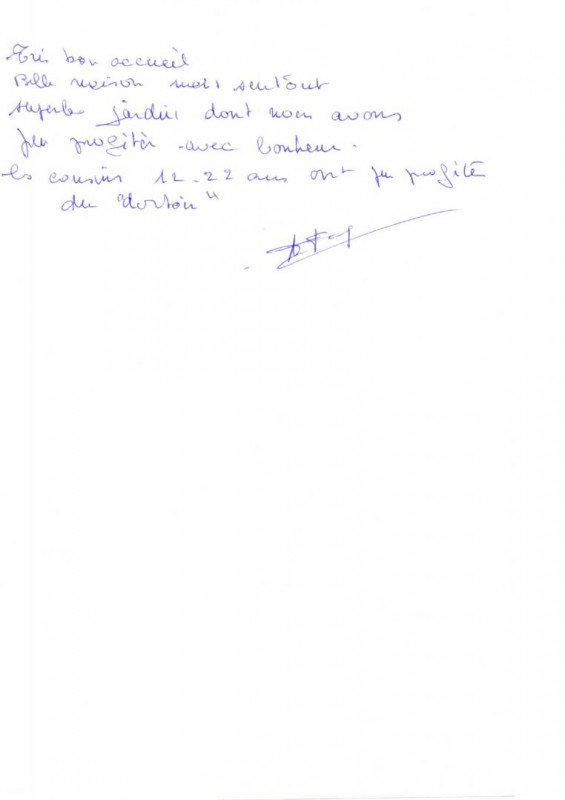 Très bon accueil
Belle maison mais surtout
superbe jardin dont nous avons
pu profiter avec bonheur.
les cousins 12-22 ans ont pu profité
du dortoir"